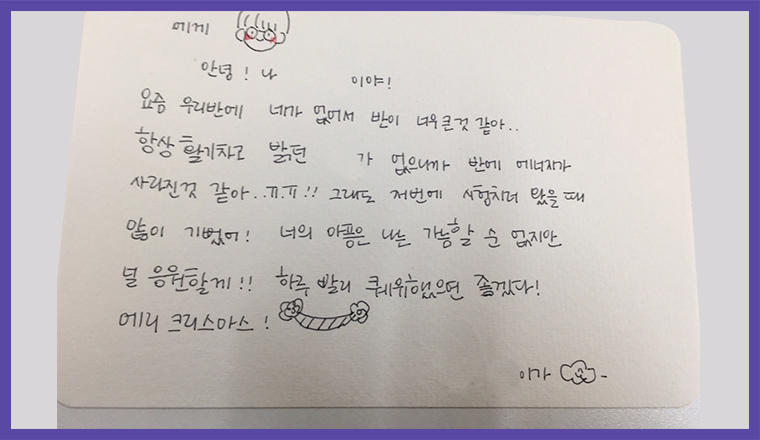 에게
안녕! 나 이야!
요즘 우리반에 네가 없어서 반이 너무 큰것 같아..
항상 활기차고 밝던 가 없으니까 반에 에너지가
사라진것 같아..ㅠ.ㅠ!! 그래도 저번에 시험치러 왔을때
많이 기뻤어! 너의 아픔은 나는 가늠할 순 없지만
널 응원할게!! 하루 빨리 쾌유했으면 좋겠다!
메리 크리스마스!
이가